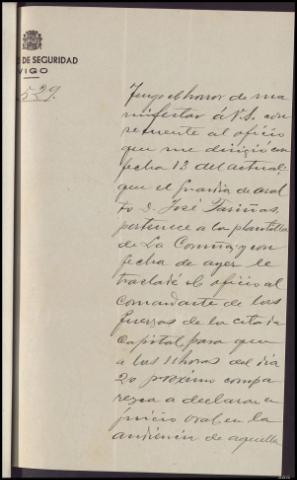 DE SEGURIDAD
VIGO
529.
Tengo el honor de ma
nifestar á V.S. con
secuente al oficio
que me dirigió con
fecha 13 del actual,
que el guardia de asal
to D. José Fariñas,
pertenece a la plantilla
de La Coruña, y con
fecha de ayer le
trasladé el oficio al
comandante de las
fuerzas de la citada
Capital para que
a las 11 horas del dia
20 proximo compa
rezca a declarar en
juicio oral en la
audiencia de aquella